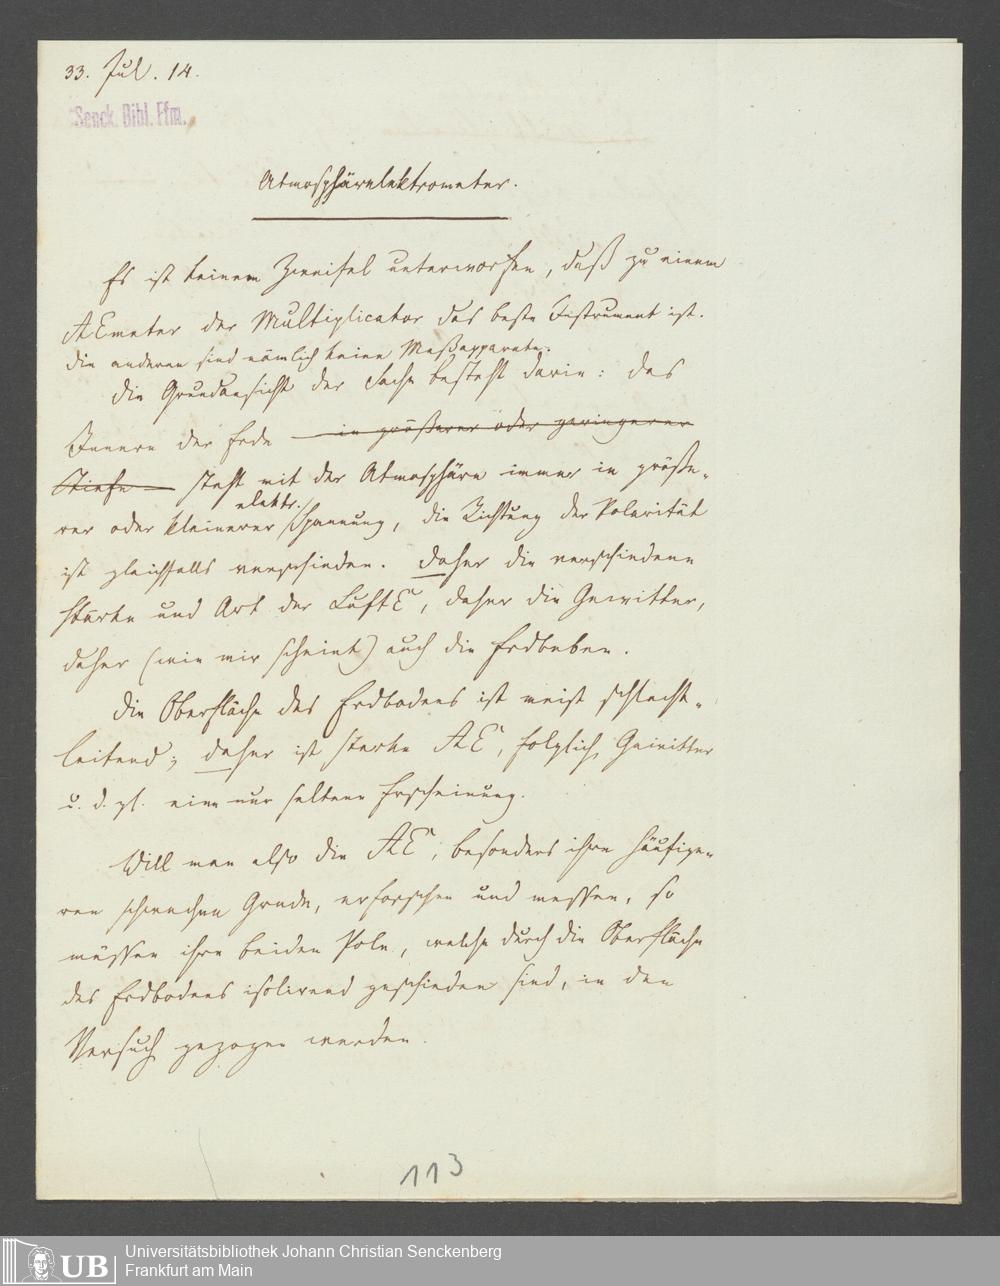 33. Jul. 14.
Senck. Bibl. Ffm.
Atmosphärelektrometer.
Es ist keinem Zweifel unterworfen, daß zu einem
AEmeter der Multiplicator das beste Instrument ist.
die anderen sind nämlich keine Meßapparate.
die Grundansicht der Sache besteht darin: das
Innere der Erde — in größerer oder geringerer
Tiefe — steht mit der Atmosphäre immer in größe-
elektr.
rer oder kleinerer Spannung, die Richtung der Polarität
ist gleichfalls verschieden. daher die verschiedene
Stärke und Art der LuftE, daher die Gewitter,
daher (wie mir scheint) auch die Erdbeben.
die Oberfläche des Erdbodens ist meist schlecht-
leitend; daher ist starke AE, folglich Gewitter
u. d. gl. eine nur seltene Erscheinung.
Will man also die AE, besonders ihre häufige-
ren schwachen Grade, erforschen und messen, so
müssen ihre beiden Pole, welche durch die Oberfläche
des Erdbodens isolirend geschieden sind, in den
Versuch gezogen werden.
113
UB
Universitätsbibliothek Johann Christian Senckenberg
Frankfurt am Main